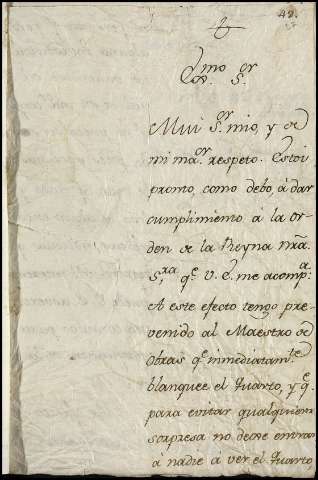 42.
Ymo or
Ex. S.
Mui S.or mio, y de
mi ma.or respeto. Estoi
pronto, como debo, à dar
cumplimiento à la or-
den de la Reyna nr̃a.
S.ra q.e V. E. me acomp.a
A este efecto tengo pre-
venido al Maestro de
obras q.e immediatam.te
blanquee el Quarto, y q.e
para evitar qualquiera
sorpresa no dexe entrar
à nadie à ver el Quarto,